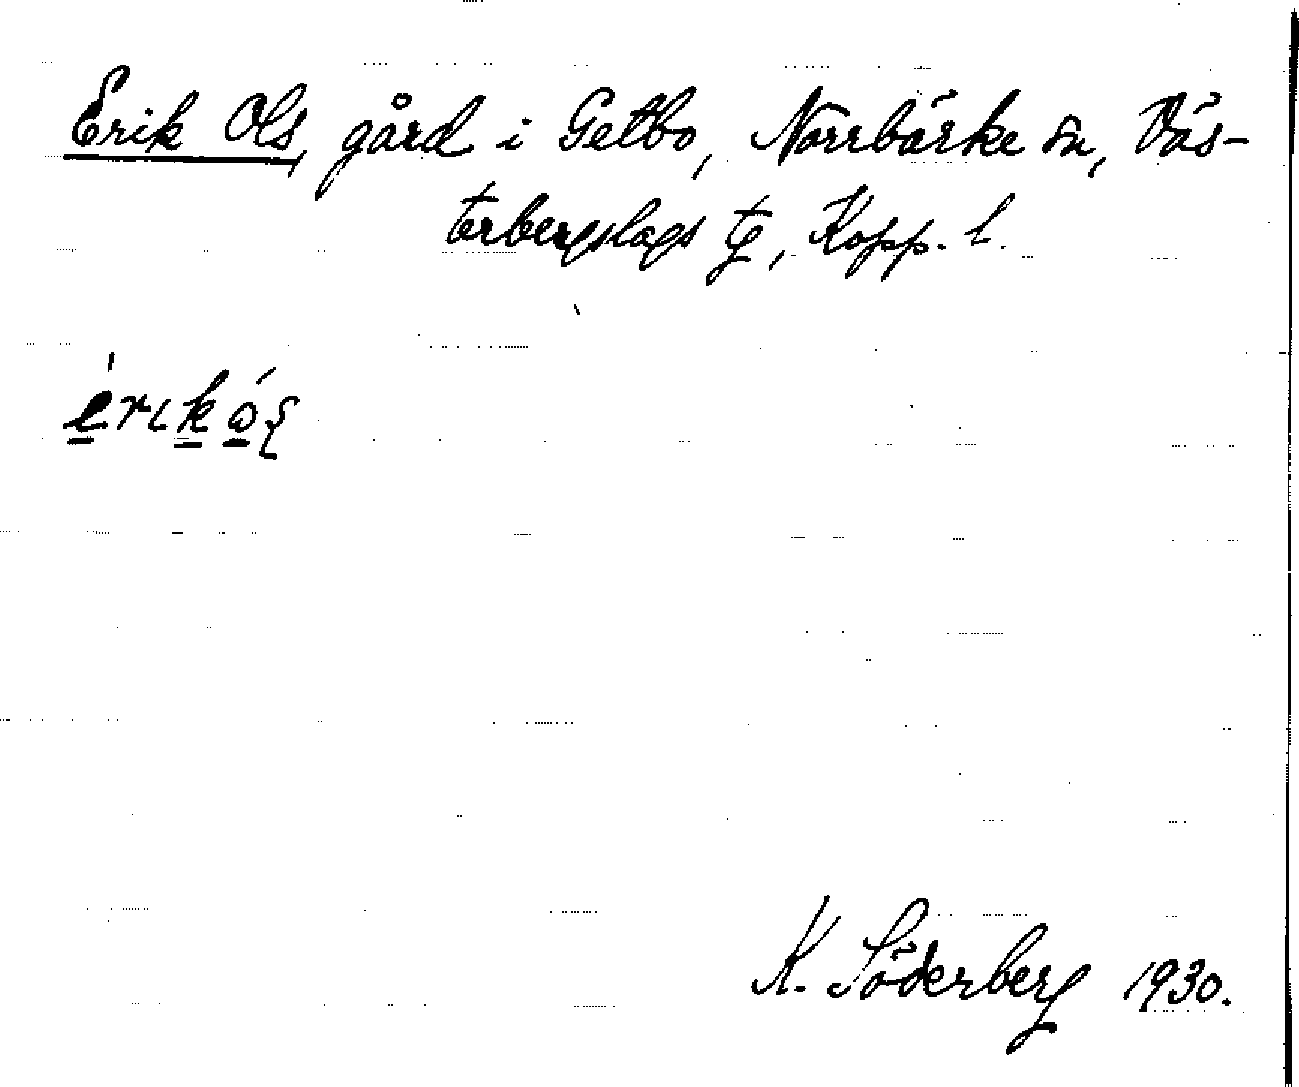 Erik Ols, gård i Getbo, Norrbärke sn, Väs-
terbergslags tg, Kopp. l.
K. Söderberg 1930.